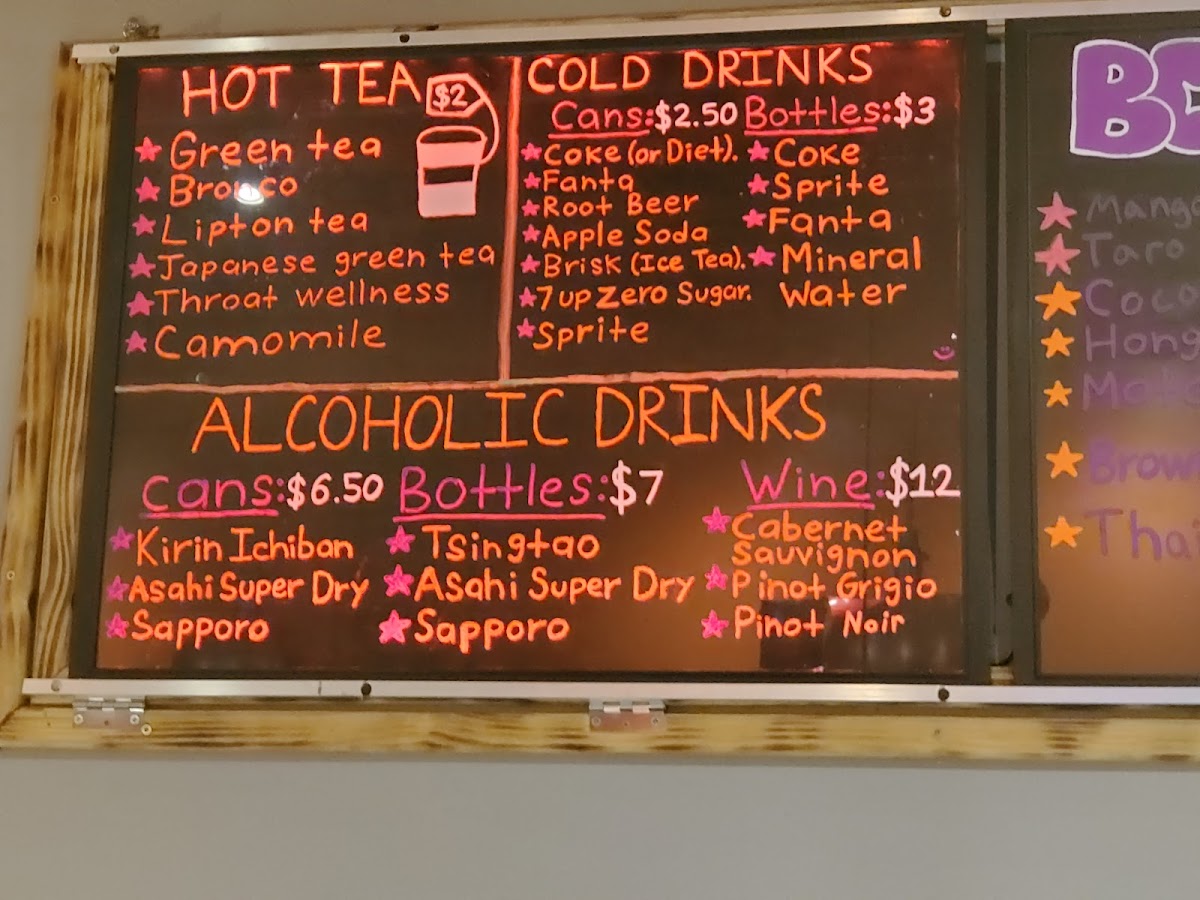 HOT TEA
$2
Green tea
Lipton tea
Japanese green tea
Throat wellness
Camomile
COLD DRINKS
Cans:$2.50
Coke (or Diet).
Fanta
Root Beer
Apple Soda
Brisk (Ice Tea).
7up Zero Sugar.
Sprite
Bottles:$3
Coke
Sprite
Fanta
Mineral
Water
ALCOHOLIC DRINKS
Cans:$6.50
Kirin Ichiban
Asahi Super Dry
Sapporo
Bottles:$7
Tsingtao
Asahi Super Dry
Sapporo
Wine:$12
Cabernet
Sauvignon
Pinot Grigio
Pinot Noir
Taro